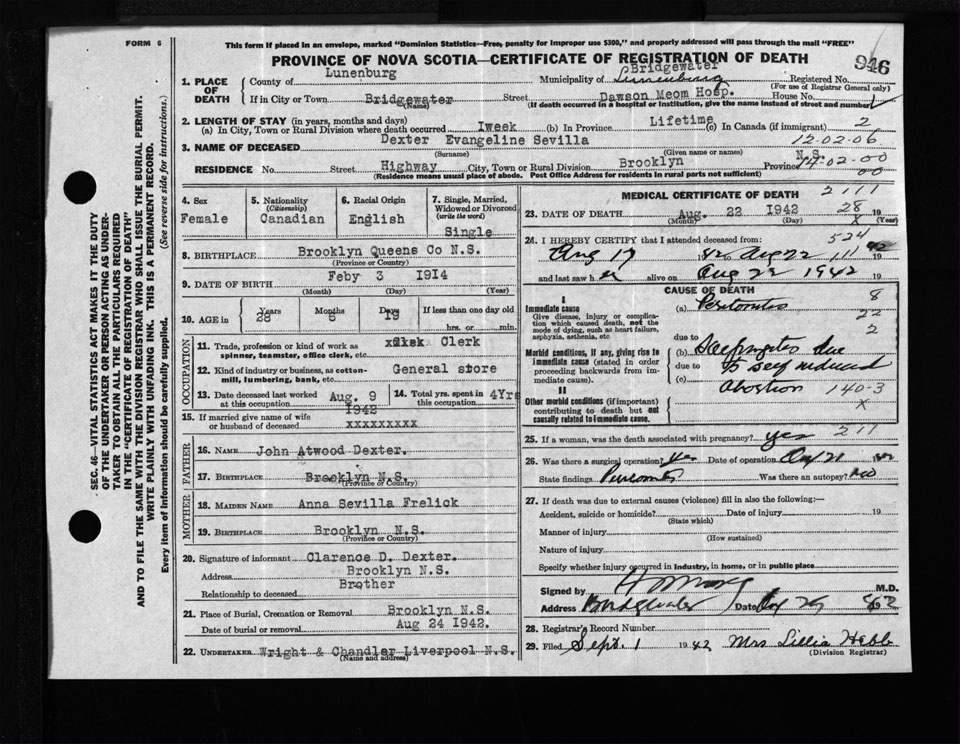 FORM 6
This form if placed in an envelope, marked "Dominion Statistics—Free, penalty for improper use $300," and properly addressed will pass through the mail "FREE"
PROVINCE OF NOVA SCOTIA—CERTIFICATE OF REGISTRATION OF DEATH
946
1. PLACE OF DEATH
County of Lunenburg
Municipality of Bridgewater Lunenburg
Registered No.
(For use of Registrar General only)
If in City or Town Bridgewater Street Dawson Meom Hosp. House No.
(Name)
(If death occurred in a hospital or institution, give the name instead of street and number)
2. LENGTH OF STAY (in years, months and days)
(a) In City, Town or Rural Division where death occurred 1week (b) In Province Lifetime (c) In Canada (if immigrant) 2
3. NAME OF DECEASED Dexter Evangeline Sevilla 12-02-06
(Surname) (Given name or names)
RESIDENCE No. Street Highway City, Town or Rural Division Brooklyn Province N.S. 14-02-00
(Residence means usual place of abode. Post Office Address for residents in rural parts not sufficient)
00
SEC. 46—VITAL STATISTICS ACT MAKES IT THE DUTY
OF THE UNDERTAKER OR PERSON ACTING AS UNDER-
TAKER TO OBTAIN ALL THE PARTICULARS REQUIRED
IN THE "CERTIFICATE OF REGISTRATION OF DEATH"
AND TO FILE THE SAME WITH THE DIVISION REGISTRAR WHO SHALL ISSUE THE BURIAL PERMIT.
WRITE PLAINLY WITH UNFADING INK. THIS IS A PERMANENT RECORD.
Every item of information should be carefully supplied. (See reverse side for instructions.)
4. Sex Female
5. Nationality (Citizenship) Canadian
6. Racial Origin English
7. Single, Married, Widowed or Divorced (write the word) Single
8. BIRTHPLACE Brooklyn Queens Co N.S.
(Province or Country)
9. DATE OF BIRTH Feby 3 1914
(Month) (Day) (Year)
10. AGE in Years 28 Months 6 Days 19 If less than one day old hrs. or min.
OCCUPATION
11. Trade, profession or kind of work as spinner, teamster, office clerk, etc. Clerk
12. Kind of industry or business, as cotton-mill, lumbering, bank, etc. General store
13. Date deceased last worked at this occupation Aug. 9 1942
14. Total yrs. spent in this occupation 4Yrs
15. If married give name of wife or husband of deceased xxxxxxxxx
FATHER
16. NAME John Atwood Dexter.
17. BIRTHPLACE Brooklyn N.S.
(Province or Country)
MOTHER
18. MAIDEN NAME Anna Sevilla Frelick
19. BIRTHPLACE Brooklyn N.S.
(Province or Country)
20. Signature of informant Clarence D. Dexter.
Address Brooklyn N.S.
Relationship to deceased Brother
21. Place of Burial, Cremation or Removal Brooklyn N.S.
Date of burial or removal Aug 24 1942.
22. UNDERTAKER Wright & Chandler Liverpool N.S.
(Name and address)
MEDICAL CERTIFICATE OF DEATH 2111
23. DATE OF DEATH Aug. 22 1942 28 19
(Month) (Day) (Year)
x
24. I HEREBY CERTIFY that I attended deceased from: 524
Aug 17 1942 to Aug 22 111 1942
and last saw her alive on Aug 22 1942 19
CAUSE OF DEATH
I
Immediate cause (a) Peritonitis 8
Give disease, injury or complication which caused death, not the mode of dying, such as heart failure, asphyxia, asthenia, etc
22
2
due to
Morbid conditions, if any, giving rise to immediate cause (stated in order proceeding backwards from immediate cause).
(b) Salpingitis due
due to
to self induced
(c)
Abortion 140-3
II
Other morbid conditions (if important) contributing to death but not causally related to immediate cause.
x
25. If a woman, was the death associated with pregnancy? yes 211
26. Was there a surgical operation? yes Date of operation Aug 21 1942
State findings Was there an autopsy? no
27. If death was due to external causes (violence) fill in also the following:—
Accident, suicide or homicide? Date of injury 19
(State which)
Manner of injury
(How sustained)
Nature of injury
Specify whether injury occurred in industry, in home, or in public place
Signed by M.D.
Address Bridgewater Date Aug 29 1942
28. Registrar's Record Number
29. Filed Sept. 1 1942 Mrs Lillia Hebb
(Division Registrar)